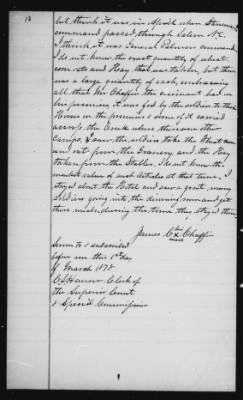 13
but think it was in April when Stoneman's
command passed through Salem N.C.
I think it was General Palmers command
I do not know the exact quantity of wheat
corn oats and Hay that was taken, but there
was a large quantity of each, embracing
all that Mr Chaffin the claimant had on
his premises, it was fed by the soldiers to their
Horses on the premises & some of it carried
across the Creek where there were other
camps. I saw the soldiers take the Wheat corn
and oats from the Granery and the Hay
taken from the Stables, I do not know the
market value of such articles at that time. I
stayed about the Hotel and saw a great many
soldiers going into the dining room and get
their meals, during the time they stayed there
James Chaffin
his
x
mark
Sworn to & subscribed
before me this 1st day
of March 1878
Clerk of
the Superior Court
& Special Commissioner